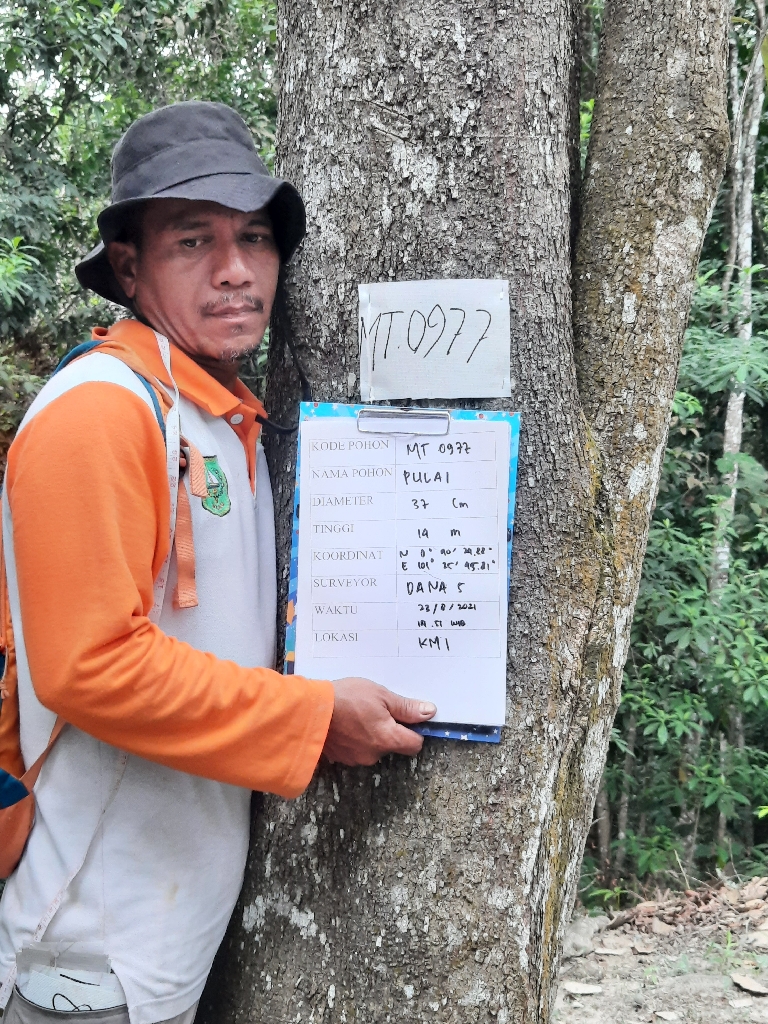 MT.0977
KODE POHON MT 0977
NAMA POHON PULAI
DIAMETER 37 Cm
TINGGI 14 m
KOORDINAT N 0° 40' 29.88"
E 101° 25' 45.81"
SURVEYOR DANA S
WAKTU 23/8/2021
14.51 WIB
LOKASI KM 1